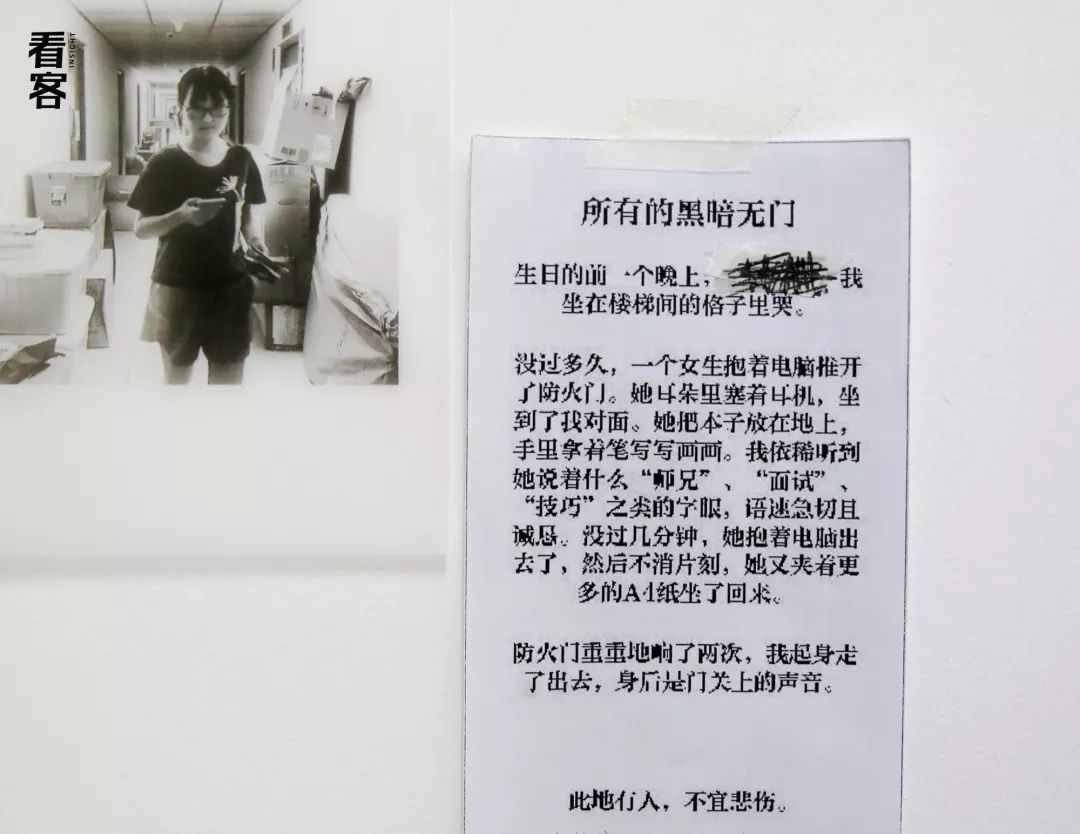 看客
INSIGHT
所有的黑暗无门
生日的前一个晚上，我
坐在楼梯间的格子里哭。
没过多久，一个女生抱着电脑推开
了防火门。她耳朵里塞着耳机，坐
到了我对面。她把本子放在地上，
手里拿着笔写写画画。我依稀听到
她说着什么“师兄”、“面试”、
“技巧”之类的字眼，语速急切且
诚恳。没过几分钟，她抱着电脑出
去了，然后不消片刻，她又夹着更
多的A4纸坐了回来。
防火门重重地响了两次，我起身走
了出去，身后是门关上的声音。
此地有人，不宜悲伤。